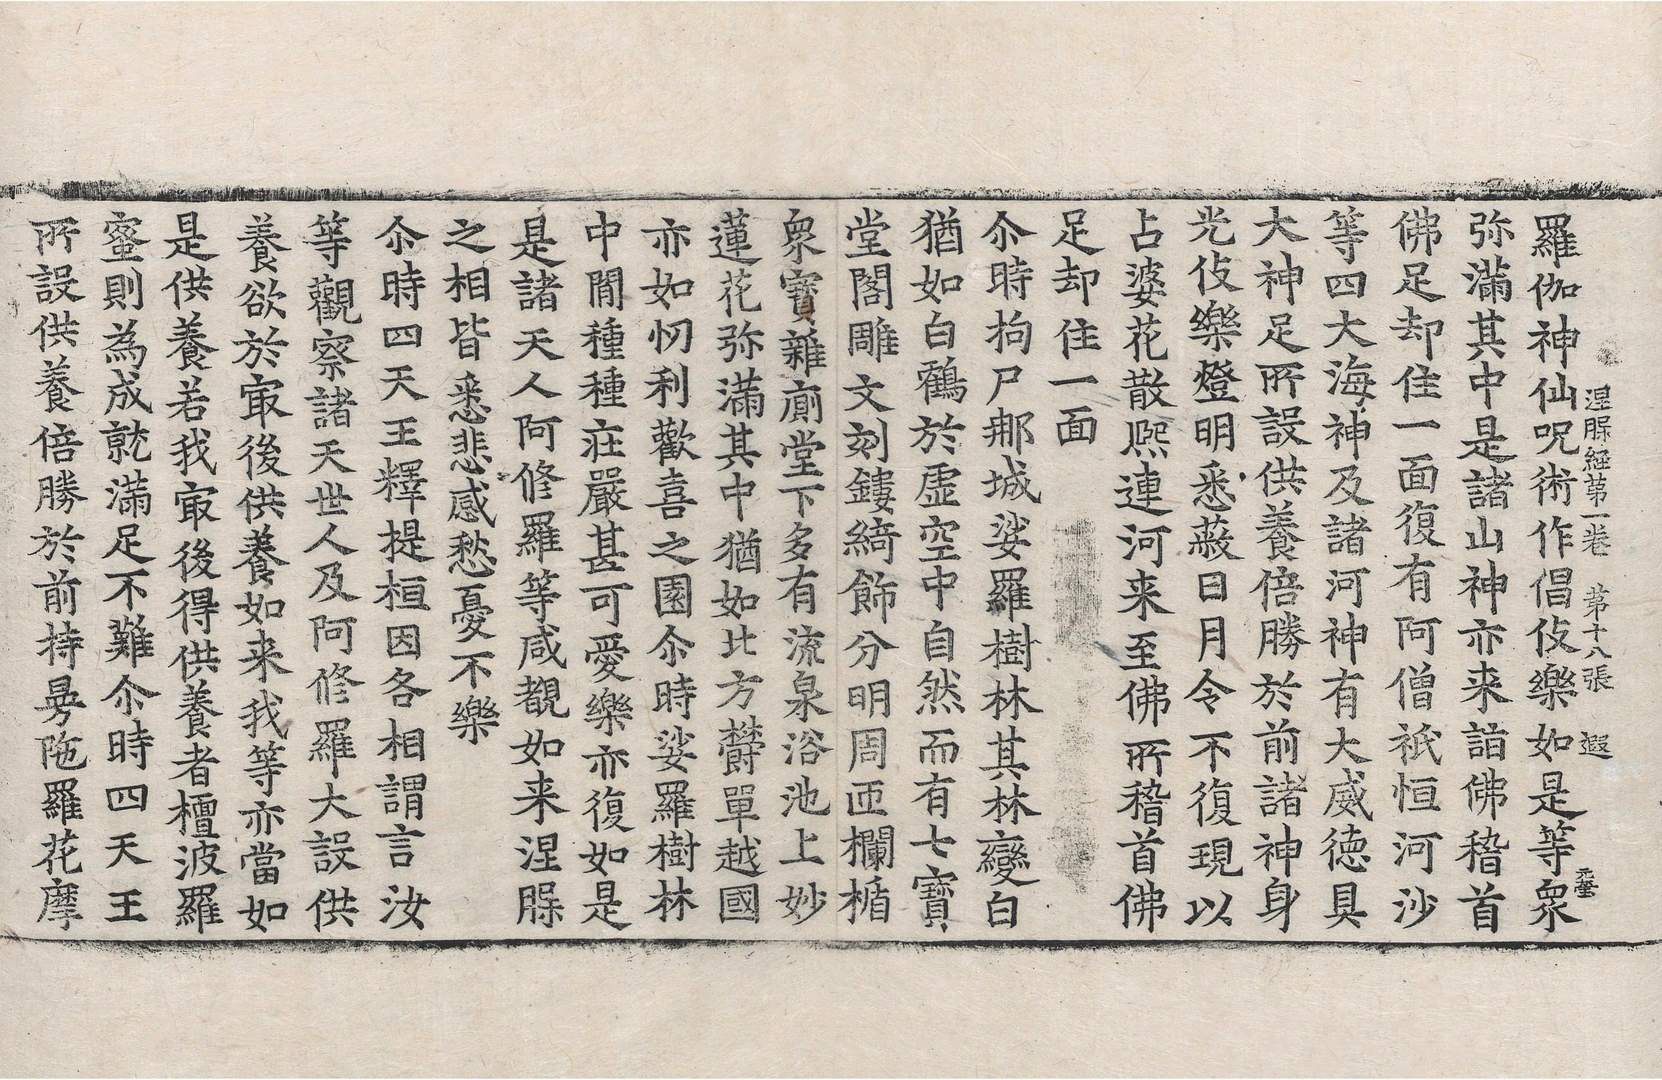 涅槃經第一卷 第十八張 遐
羅伽神仙呪術作倡伎樂如是等衆
弥滿其中是諸山神亦来詣佛稽首
佛足却住一面復有阿僧祇恒河沙
等四大海神及諸河神有大威德具
大神足所設供養倍勝於前諸神身
光伎樂燈明悉蔽日月令不復現以
占婆花散熙連河来至佛所稽首佛
足却住一面
尒時拘尸那城娑羅樹林其林變白
猶如白鶴於虛空中自然而有七寶
堂閣雕文刻鏤綺飾分明周匝欄楯
衆寶雜廁堂下多有流泉浴池上妙
蓮花弥滿其中猶如北方欝單越國
亦如忉利歡喜之園尒時娑羅樹林
中間種種莊嚴甚可愛樂亦復如是
是諸天人阿修羅等咸覩如来涅槃
之相皆悉悲感愁憂不樂
尒時四天王釋提桓因各相謂言汝
等觀察諸天世人及阿修羅大設供
養欲於㝡後供養如来我等亦當如
是供養若我㝡後得供養者檀波羅
蜜則為成就滿足不難尒時四天王
所設供養倍勝於前持曼陁羅花摩